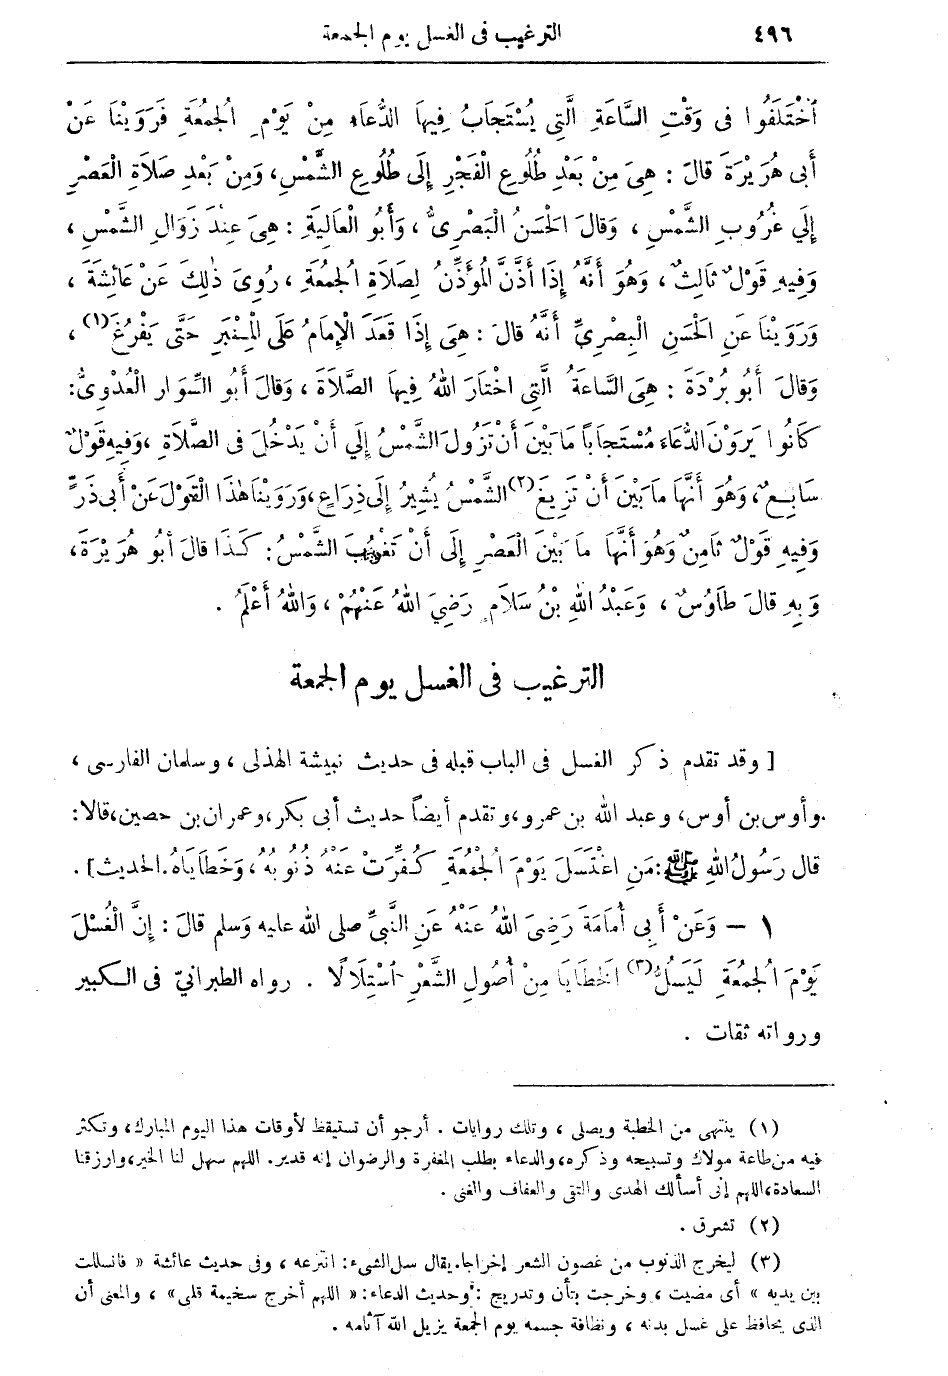 ٤٩٦ الترغيب فى الغسل يوم الجمعة
ٱخْتَلَفُوا فى وَقْتِ السَّاعَةِ الَّتِى يُسْتَجَابُ فِيهَا الدُّعَاءُ مِنْ يَوْمِ الْجُمُعَةِ فَرَوَيْنَا عَنْ
أَبِى هُرَيْرَةَ قالَ : هِىَ مِنْ بَعْدِ طُلُوعِ الْفَجْرِ إِلَى طُلُوعِ الشَّمْسِ، وَمِنْ بَعْدِ صَلَاةِ الْعَصْرِ
إِلَي غُرُوبِ الشَّمْسِ ، وَقَالَ الْحَسَنُ الْبَصْرِىُّ ، وَأَبُو الْعَالِيَةِ : هِىَ عِنْدَ زَوَالِ الشَّمْسِ ،
وَفِيهِ قَوْلٌ ثَالِثٌ ، وَهُوَ أَنَّهُ إِذَا أَذَّنَ الْمُؤَذِّنُ لِصَلَاةِ الْجُمُعَةِ ، رُوِىَ ذٰلِكَ عَنْ عَائِشَةَ ،
وَرَوَيْنَا عَنِ الْحَسَنِ الْبَصْرِىِّ أَنَّهُ قالَ : هِىَ إِذَا قَعَدَ الْإِمَامُ عَلَى الْمِنْبَرِ حَتَّى يَفْرُغَ(١) ،
وَقَالَ أَبُو بُرْدَةَ : هِىَ السَّاعَةُ الَّتِى اخْتَارَ اللهُ فِيهَا الصَّلَاةَ ، وَقالَ أَبُو السَّوَارِ الْعَدْوِىُّ:
كَانُوا يَرَوْنَ الدُّعَاءَ مُسْتَجَاباً مَا بَيْنَ أَنْ تَزُولَ الشَّمْسُ إِلَي أَنْ يَدْخُلَ فى الصَّلَاةِ ، وَفِيهِ قَوْلٌ
سَابِعٌ، وَهُوَ أَنَّهَا مَا بَيْنَ أَنْ تَزِيغَ(٢) الشَّمْسُ يُشِيرُ إِلَى ذِرَاعٍ، وَرَوَيْنَا هٰذَا الْقَوْلَ عَنْ أَبِى ذَرٍّ
وَفِيهِ قَوْلٌ ثَامِنٌ وَهُوَ أَنَّهَا مَا بَيْنَ الْعَصْرِ إِلَى أَنْ تَغْرُبَ الشَّمْسُ: كَذَا قالَ أَبُو هُرَيْرَةَ،
وَبِهِ قالَ طَاوُسٌ ، وَعَبْدُ اللهِ بْنُ سَلَامٍ رَضِىَ اللهُ عَنْهُمْ ، وَاللهُ أَعْلَمُ .
الترغيب فى الغسل يوم الجمعة
[ وقد تقدم ذكر الغسل فى الباب قبله فى حديث نبيشة الهذلى ، وسلمان الفارسى ،
وأوس بن أوس، وعبد الله بن عمرو، وتقدم أيضاً حديث أبى بكر، وعمران بن حصين، قالا:
قال رَسُولُ اللهِ ﷺ: مَنِ اغْتَسَلَ يَوْمَ الْجُمُعَةِ كُفِّرَتْ عَنْهُ ذُنُوبُهُ، وَخَطَايَاهُ. الحديث].
١ – وَعَنْ أَبِى أُمَامَةَ رَضِىَ اللهُ عَنْهُ عَنِ النَّبِىِّ صلى الله عليه وَسلم قالَ : إِنَّ الْغُسْلَ
يَوْمَ الْجُمُعَةِ لَيَسُلُّ(٣) الْخَطَايَا مِنْ أُصُولِ الشَّعْرِ ٱسْتِلَالًا . رواه الطبرانىّ فى الكبير
ورواته ثقات .
(١) ينتهى من الخطبة ويصلى ، وتلك روايات . أرجو أن تستيقظ لأوقات هذا اليوم المبارك، وتكثر
فيه من طاعة مولاك وتسبيحه وذكره، والدعاء بطلب المغفرة والرضوان إنه قدير. اللهم سهل لنا الخير، وارزقنا
السعادة، اللهم إنى أسألك الهدى والتقى والعفاف والغنى .
(٢) تشرق .
(٣) ليخرج الذنوب من غصون الشعر إخراجا. يقال سل الشىء: انتزعه ، وفى حديث عائشة « فانسللت
بين يديه » أى مضيت ، وخرجت بتأن وتدريج : وحديث الدعاء: « اللهم أخرج سخيمة قلبى» ، والمعنى أن
الذى يحافظ على غسل بدنه ، ونظافة جسمه يوم الجمعة يزيل الله آثامه .